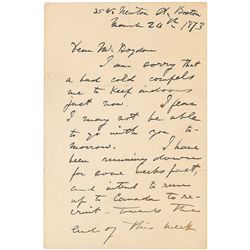 Newton St, Boston
March 24th, 1873
Dear Mr. Bogdon
I am sorry that
a bad cold compels
me to keep indoors
just now. I fear
I may not be able
to go with you to-
morrow. I have
been running down
for some weeks past,
and intend to run
up to Canada to re-
cruit - towards the
end of this week